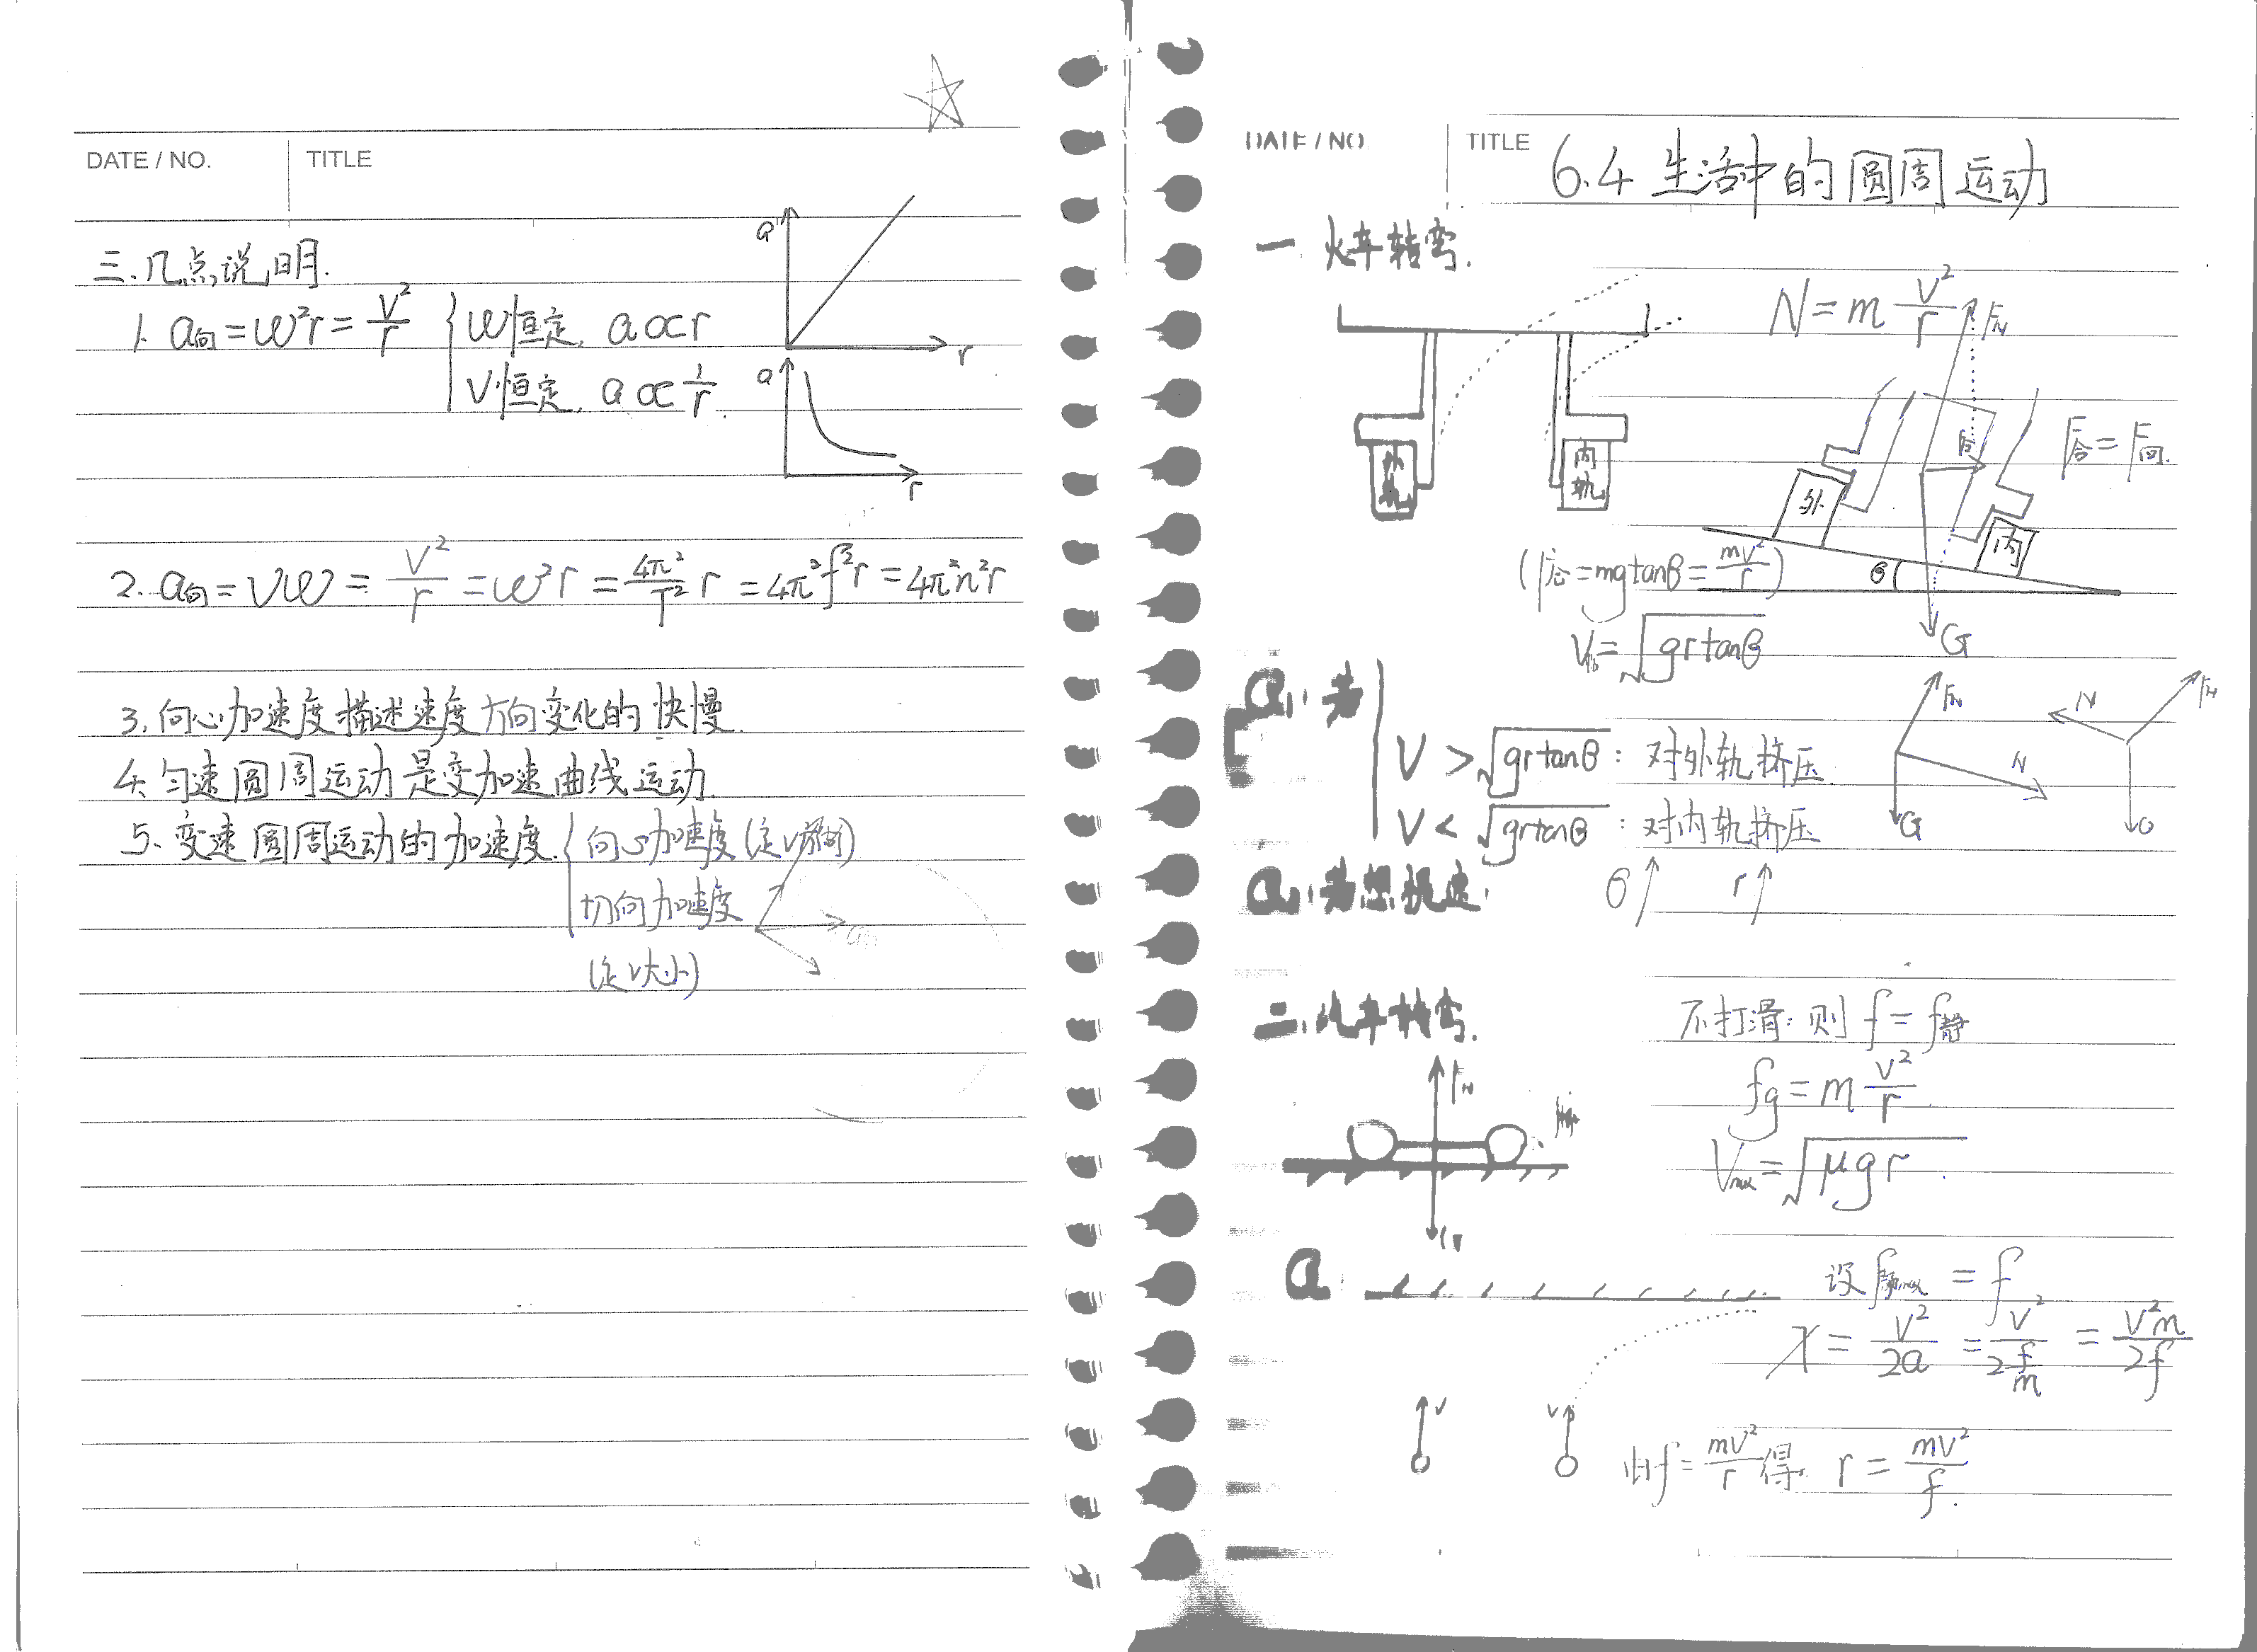 DATE / NO. TITLE
三.几点说明.
1. a向=ω²r=v²/r { ω恒定, a∝r
V恒定, a∝1/r
a
r
a
r
2. a向=vω=v²/r=ω²r=4π²/T² r=4π²f²r=4π²n²r
3.向心加速度描述速度方向变化的快慢.
4.匀速圆周运动是变加速曲线运动.
5.变速圆周运动的加速度.{ 向心加速度(定v方向)
切向加速度
(定v大小)
DATE / NO. TITLE 6.4 生活中的圆周运动
一 火车转弯.
N=m v²/r
FN
F合=F向.
外轨
内轨
F向
外
内
θ
G
(F合=mgtanθ=mv²/r)
V临=√grtanθ
Q1:若
V>√grtanθ: 对外轨挤压.
V<√grtanθ: 对内轨挤压
FN
N
G
N
FN
G
Q2:若想提速: θ↑ r↑
二.汽车转弯.
不打滑:则 f=f静
fg=m v²/r
Vmax=√μgr
FN
f静
G
Q
设f静max=f
x=v²/2a=v²/(2 f/m)=v²m/2f
v
v
由f=mv²/r得. r=mv²/f.